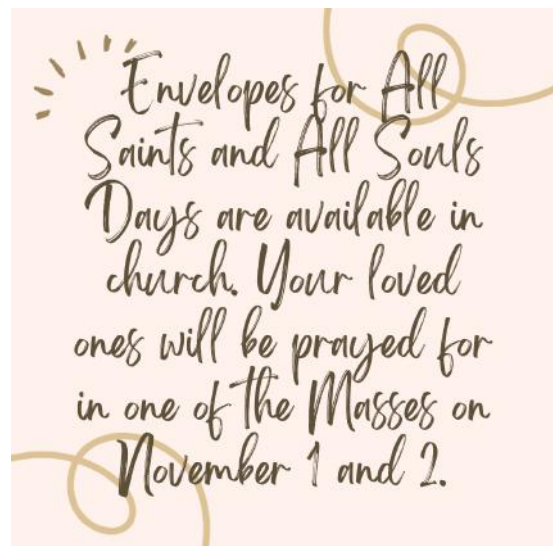 Envelopes for All
Saints and All Souls
Days are available in
church. Your loved
ones will be prayed for
in one of the Masses on
November 1 and 2.